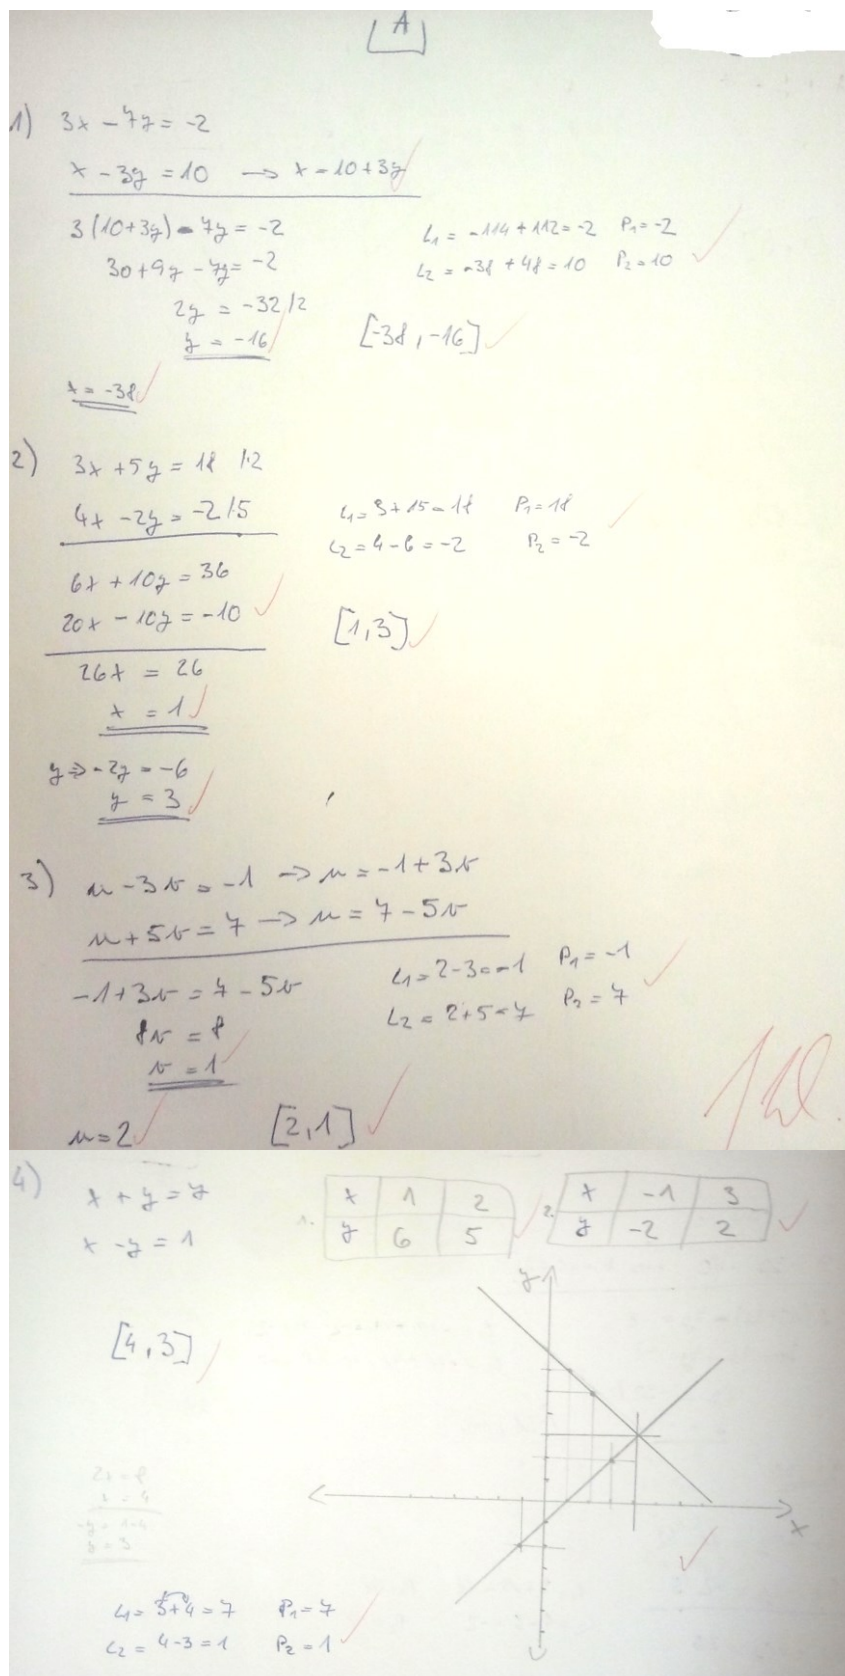 A
1) 3x - 7y = -2
x - 3y = 10 → x = 10+3y
3(10+3y) - 7y = -2
30+9y - 7y = -2
2y = -32 /2
y = -16
x = -38
L₁ = -114 + 112 = -2 P₁ = -2
L₂ = -38 + 48 = 10 P₂ = 10
[-38, -16]
2) 3x + 5y = 18 /·2
4x - 2y = -2 /·5
6x + 10y = 36
20x - 10y = -10
26x = 26
x = 1
y ⇒ -2y = -6
y = 3
L₁ = 3 + 15 = 18 P₁ = 18
L₂ = 4 - 6 = -2 P₂ = -2
[1, 3]
3) u - 3v = -1 → u = -1 + 3v
u + 5v = 7 → u = 7 - 5v
-1 + 3v = 7 - 5v
8v = 8
v = 1
u = 2
L₁ = 2 - 3 = -1 P₁ = -1
L₂ = 2 + 5 = 7 P₂ = 7
[2, 1]
4) x + y = 7
x - y = 1
1. x 1 2
y 6 5
2. x -1 3
y -2 2
[4, 3]
y
x
2x = 8
x = 4
-y = 1-4
y = 3
L₁ = 3 + 4 = 7 P₁ = 7
L₂ = 4 - 3 = 1 P₂ = 1